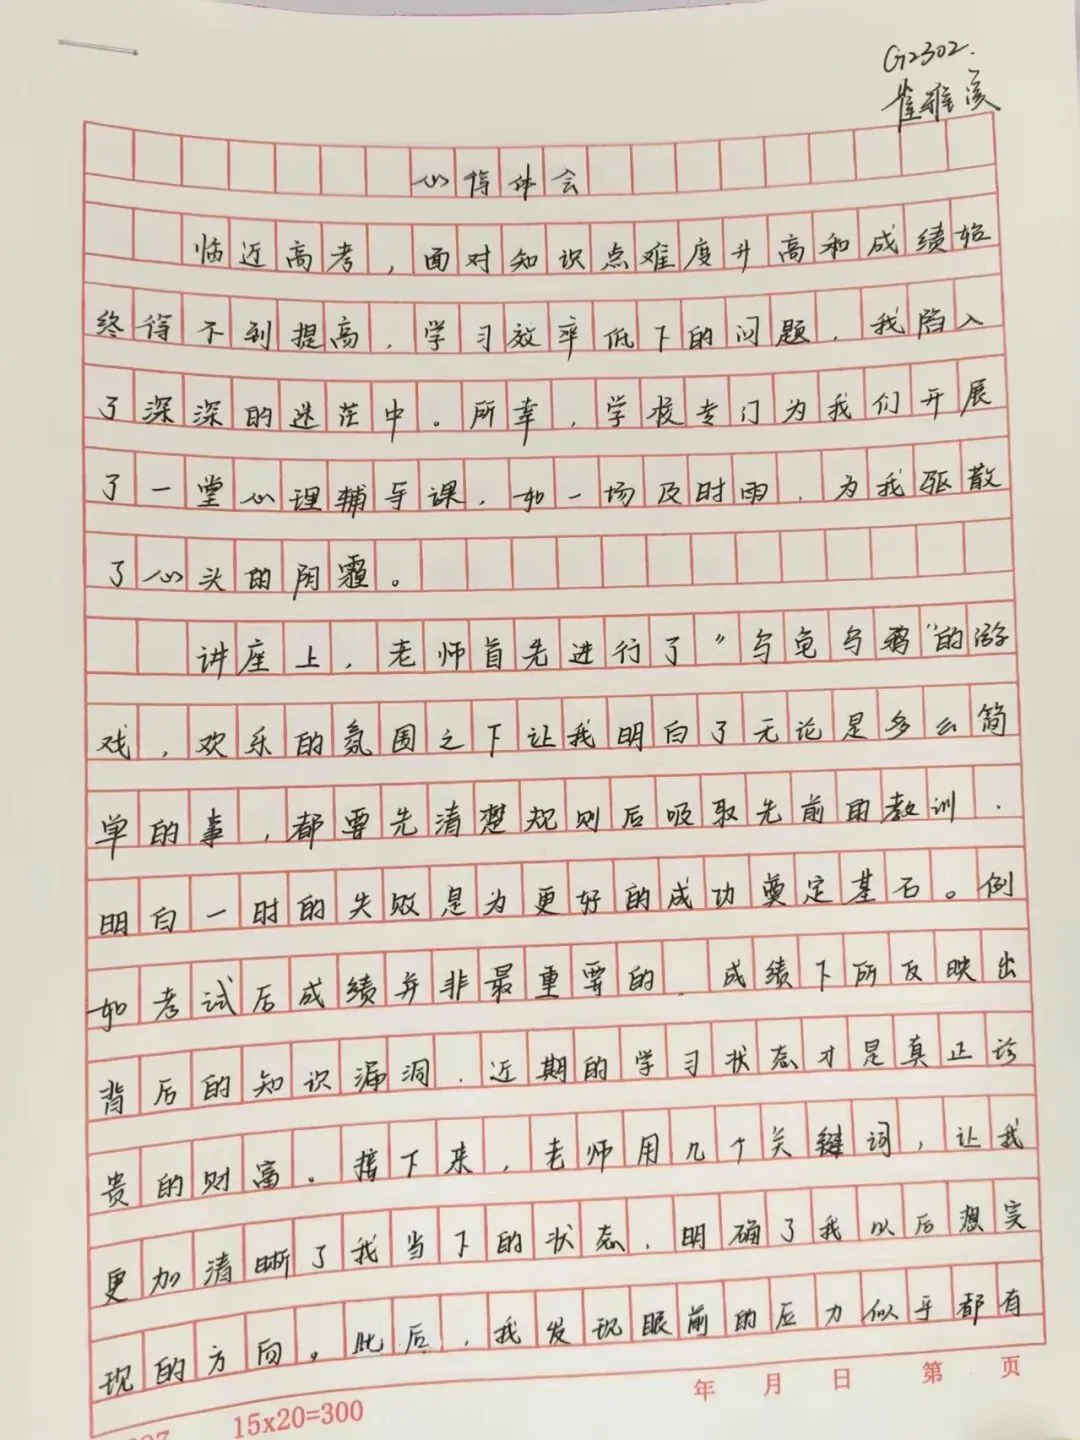 G2302.
崔雅溪
心得体会
临近高考，面对知识点难度升高和成绩始
终得不到提高，学习效率低下的问题，我陷入
了深深的迷茫中。所幸，学校专门为我们开展
了一堂心理辅导课，如一场及时雨，为我驱散
了心头的阴霾。
讲座上，老师首先进行了“乌龟乌鸦”的游
戏，欢乐的氛围之下让我明白了无论是多么简
单的事，都要先清楚规则后吸取先前的教训，
明白一时的失败是为更好的成功奠定基石。例
如考试后成绩并非最重要的，成绩下所反映出
背后的知识漏洞，近期的学习状态才是真正珍
贵的财富。接下来，老师用几个关键词，让我
更加清晰了我当下的状态，明确了我以后想实
现的方向。此后，我发现眼前的压力似乎都有
15x20=300
年 月 日 第 页